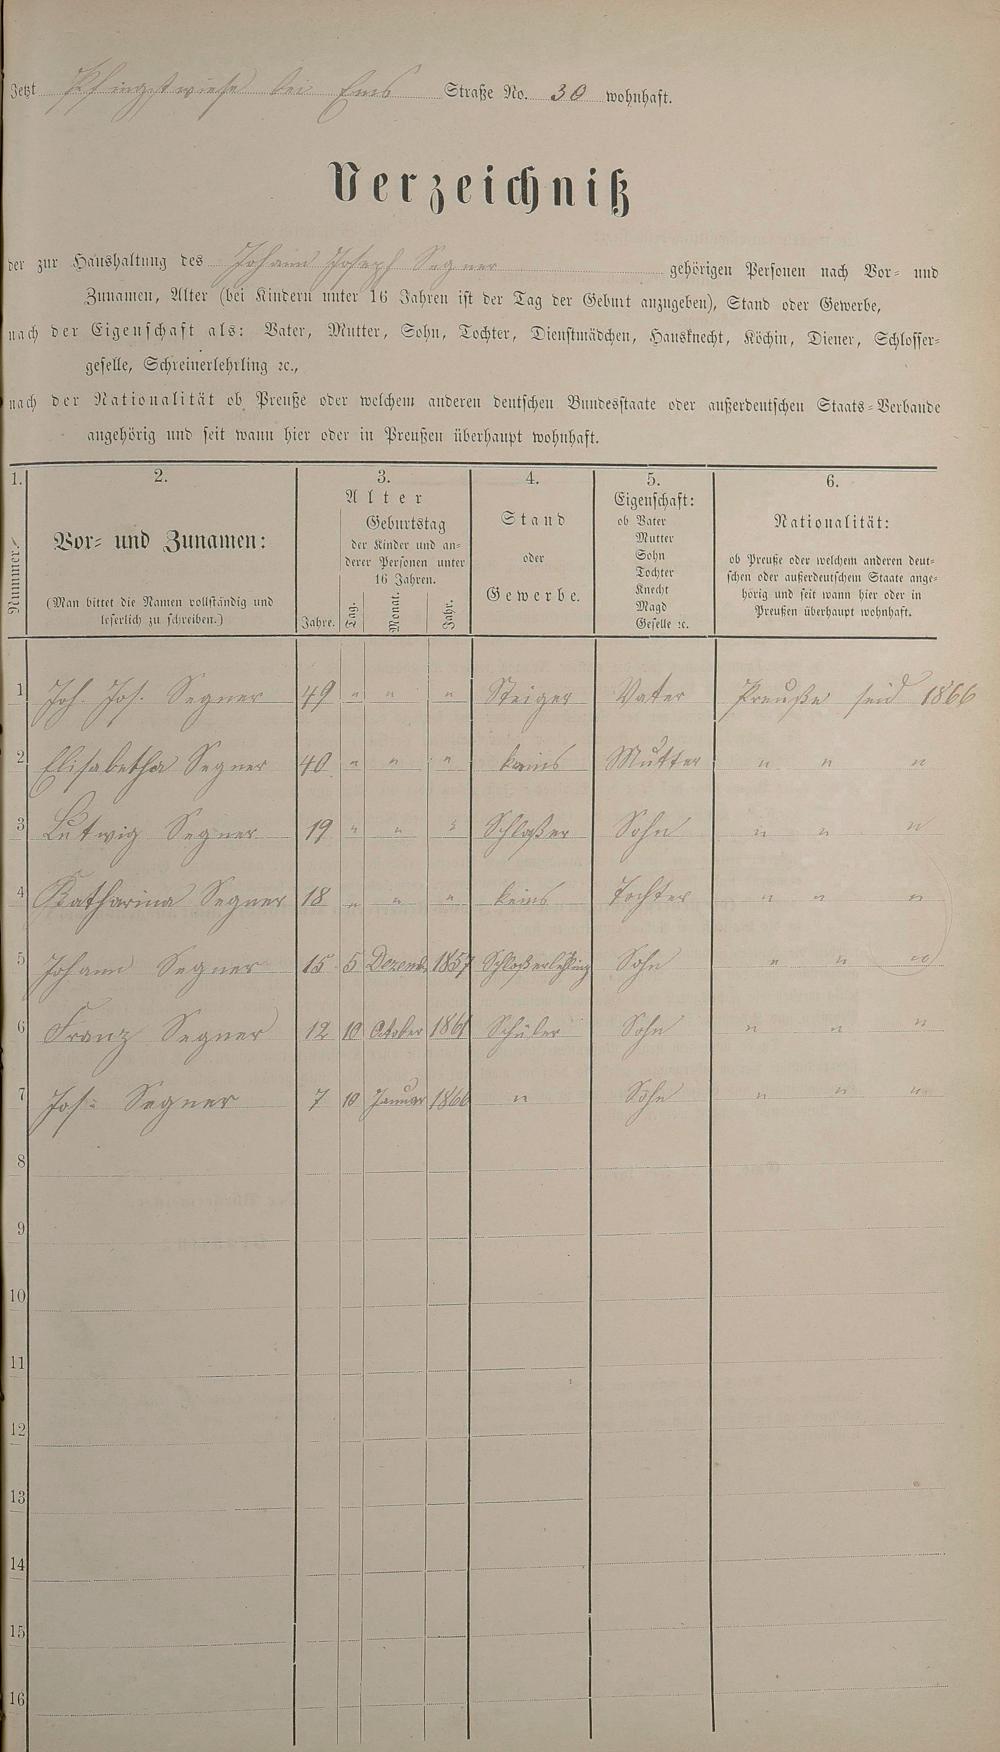 Jetzt Pfingstwiese bei Ems Straße No. 30 wohnhaft.
Verzeichniß
der zur Haushaltung des Johann Joseph Segner gehörigen Personen nach Vor- und
Zunamen, Alter (bei Kindern unter 16 Jahren ist der Tag der Geburt anzugeben), Stand oder Gewerbe,
nach der Eigenschaft als: Vater, Mutter, Sohn, Tochter, Dienstmädchen, Hausknecht, Köchin, Diener, Schlosser-
geselle, Schreinerlehrling ꝛc.,
nach der Nationalität ob Preuße oder welchem anderen deutschen Bundesstaate oder außerdeutschen Staats-Verbande
angehörig und seit wann hier oder in Preußen überhaupt wohnhaft.
1. 2. 3. 4. 5. 6.
Nummer.
Vor- und Zunamen:
(Man bittet die Namen vollständig und
leserlich zu schreiben.)
Alter
Jahre.
Geburtstag
der Kinder und an-
derer Personen unter
16 Jahren.
Tag. Monat. Jahr.
Stand
oder
Gewerbe.
Eigenschaft:
ob Vater
Mutter
Sohn
Tochter
Knecht
Magd
Geselle ꝛc.
Nationalität:
ob Preuße oder welchem anderen deut-
schen oder außerdeutschem Staate ange-
hörig und seit wann hier oder in
Preußen überhaupt wohnhaft.
1 Joh. Jos. Segner 49 " " " Steiger Vater Preuße seid 1866
2 Elisabetha Segner 40 " " " keins Mutter " " "
3 Lutwig Segner 19 " " " Schloßer Sohn " " "
4 Katharina Segner 18 " " " keins Tochter " " "
5 Johann Segner 15 5 Dezemb 1857 Schloßerlehling Sohn " " "
6 Franz Segner 12 10 October 1861 Schüler Sohn " " "
7 Jos: Segner 7 10 Januar 1866 " Sohn " " "
8
9
10
11
12
13
14
15
16